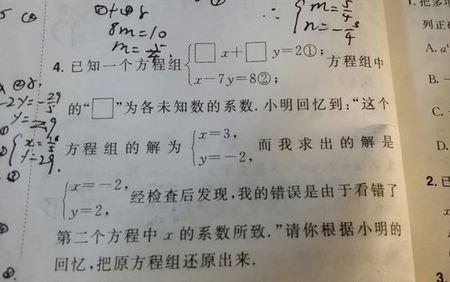 ①+②
8m=10
m=5/4
m=5/4
n=-3/4
4. 已知一个方程组{□x+□y=2①; □x-7y=8②; 方程组中
的“□”为各未知数的系数. 小明回忆到:“这个
方程组的解为{x=3, y=-2, 而我求出的解是
{x=-2, y=2, 经检查后发现,我的错误是由于看错了
第二个方程中 x 的系数所致.”请你根据小明的
回忆,把原方程组还原出来.
列正
A. a
B. -
C.
D.
2. 已
3.